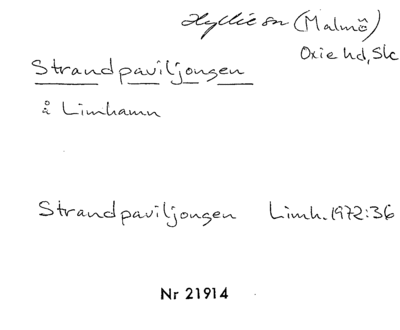 Hyllie sn (Malmö)
Oxie hd, Sk
Strandpaviljongen
å Limhamn
Strandpaviljongen Limh. 1972:36
Nr 21914